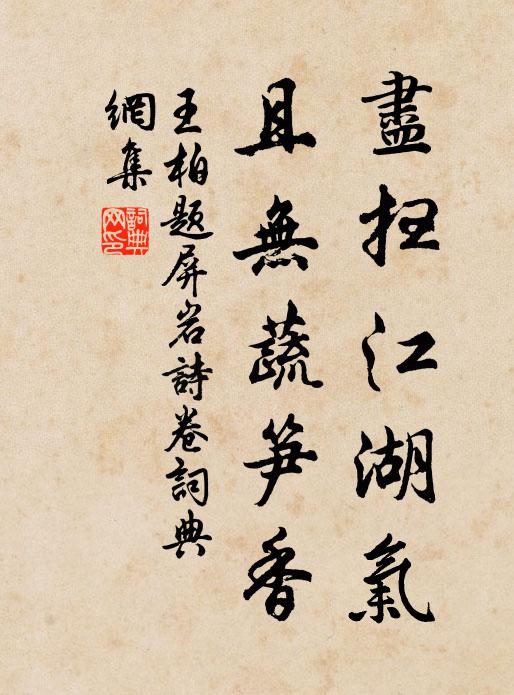 盡扫江湖氣
且無蔬笋香
王柏题屏岩詩卷詞典
網集
詞典
网印